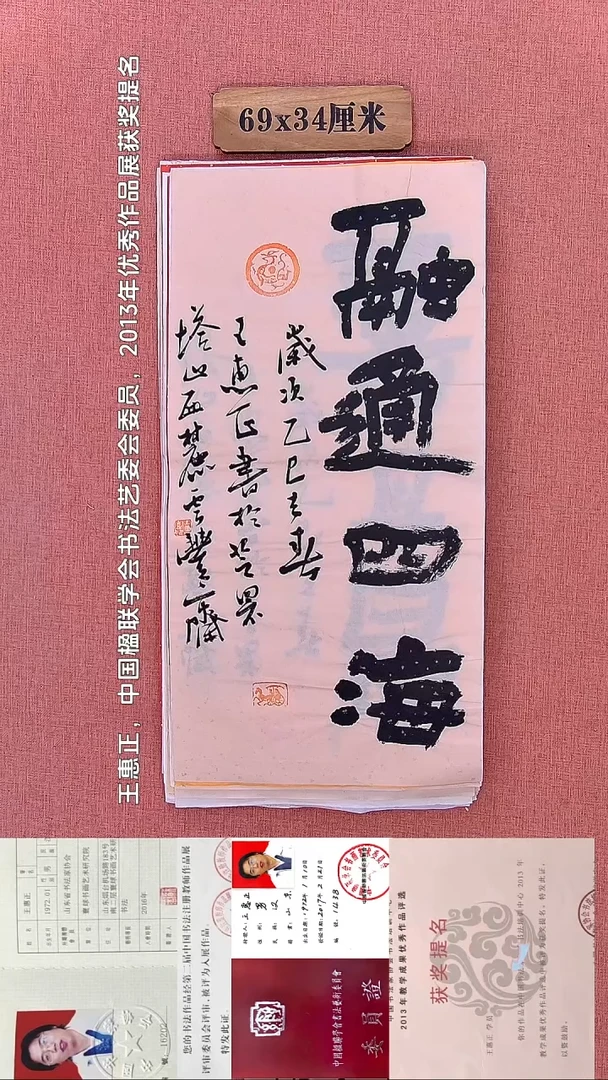 69x34厘米
王惠正，中国楹联学会书法艺委会委员，2013年优秀作品展获奖提名
融通四海
歲次乙巳之春
王惠正書於芝罘
塔山西麓雲豐齋
王惠正
1972.01
男
山东省书法家协会
寰球书画艺术研究院
书法
2016年
您的书法作品经第二届中国书法注册教师作品展
评审委员会评审，被评为入展作品。
特发此证。
王惠正
男
汉
山东
中国楹聯學會書法藝術委員會
委員證
2013年教学成果优秀作品评选
获奖提名
王惠正 学员
以资鼓励。